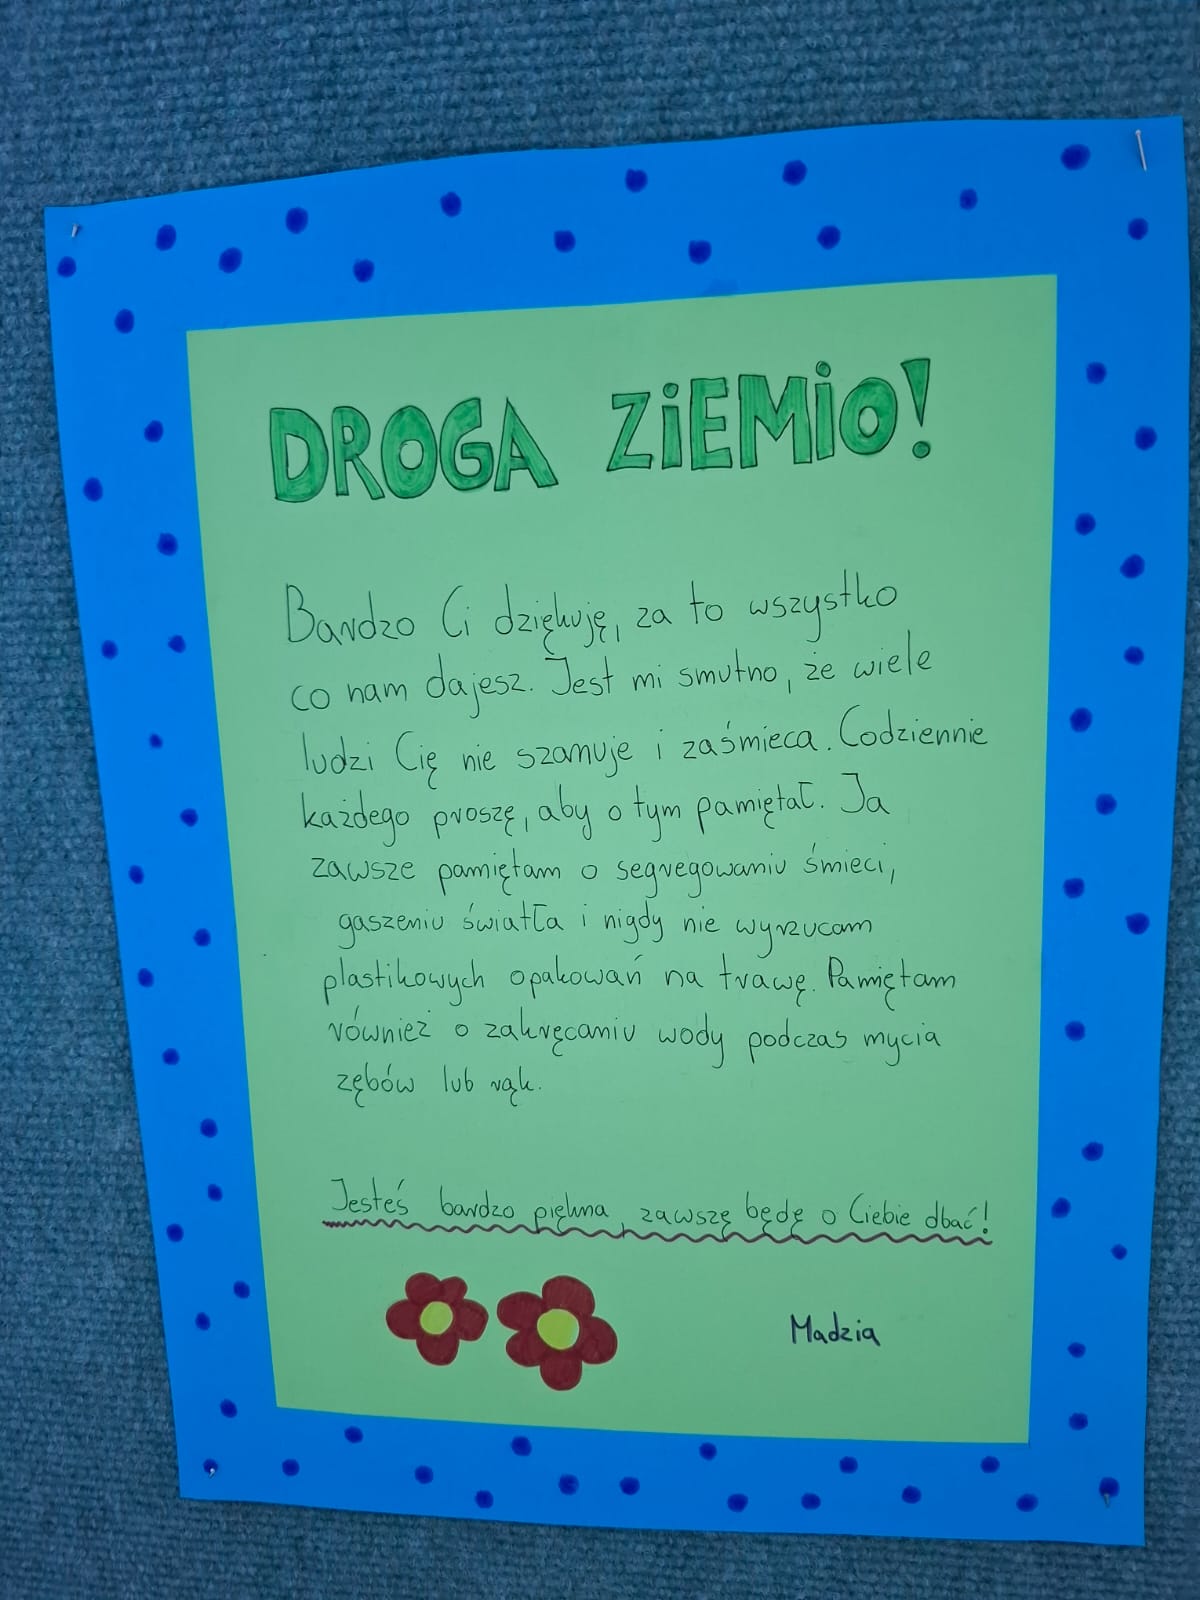 DROGA ZiEMiO!
Bardzo Ci dziękuję, za to wszystko
co nam dajesz. Jest mi smutno, że wiele
ludzi Cię nie szanuje i zaśmieca. Codziennie
każdego proszę, aby o tym pamiętał. Ja
zawsze pamiętam o segregowaniu śmieci,
gaszeniu światła i nigdy nie wyrzucam
plastikowych opakowań na trawę. Pamiętam
również o zakręcaniu wody podczas mycia
zębów lub rąk.
Jesteś bardzo piękna, zawszę będę o Ciebie dbać!
Madzia